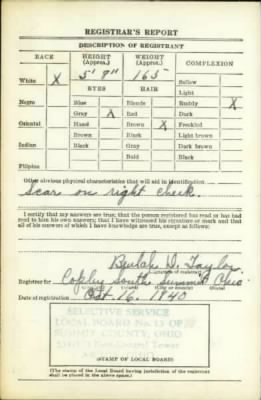 REGISTRAR'S REPORT
DESCRIPTION OF REGISTRANT
RACE HEIGHT (Approx.) WEIGHT (Approx.) COMPLEXION
White X 5' 8" 165 Sallow
Light
EYES HAIR
Negro Blue Blonde Ruddy X
Gray X Red Dark
Oriental Hazel Brown X Freckled
Brown Black Light brown
Indian Black Gray Dark brown
Bald Black
Filipino
Other obvious physical characteristics that will aid in identification
Scar on right cheek.
I certify that my answers are true; that the person registered has read or has had
read to him his own answers; that I have witnessed his signature or mark and that
all of his answers of which I have knowledge are true, except as follows:
Beulah D. Taylor
(Signature of registrar)
Registrar for Copley South Summit Ohio
(City or county) (State)
Date of registration Oct. 16, 1940
SELECTIVE SERVICE
LOCAL BOARD No. 13 OF
SUMMIT COUNTY, OHIO
Central Tower
(STAMP OF LOCAL BOARD)
(The stamp of the Local Board having jurisdiction of the registrant
shall be placed in the above space.)